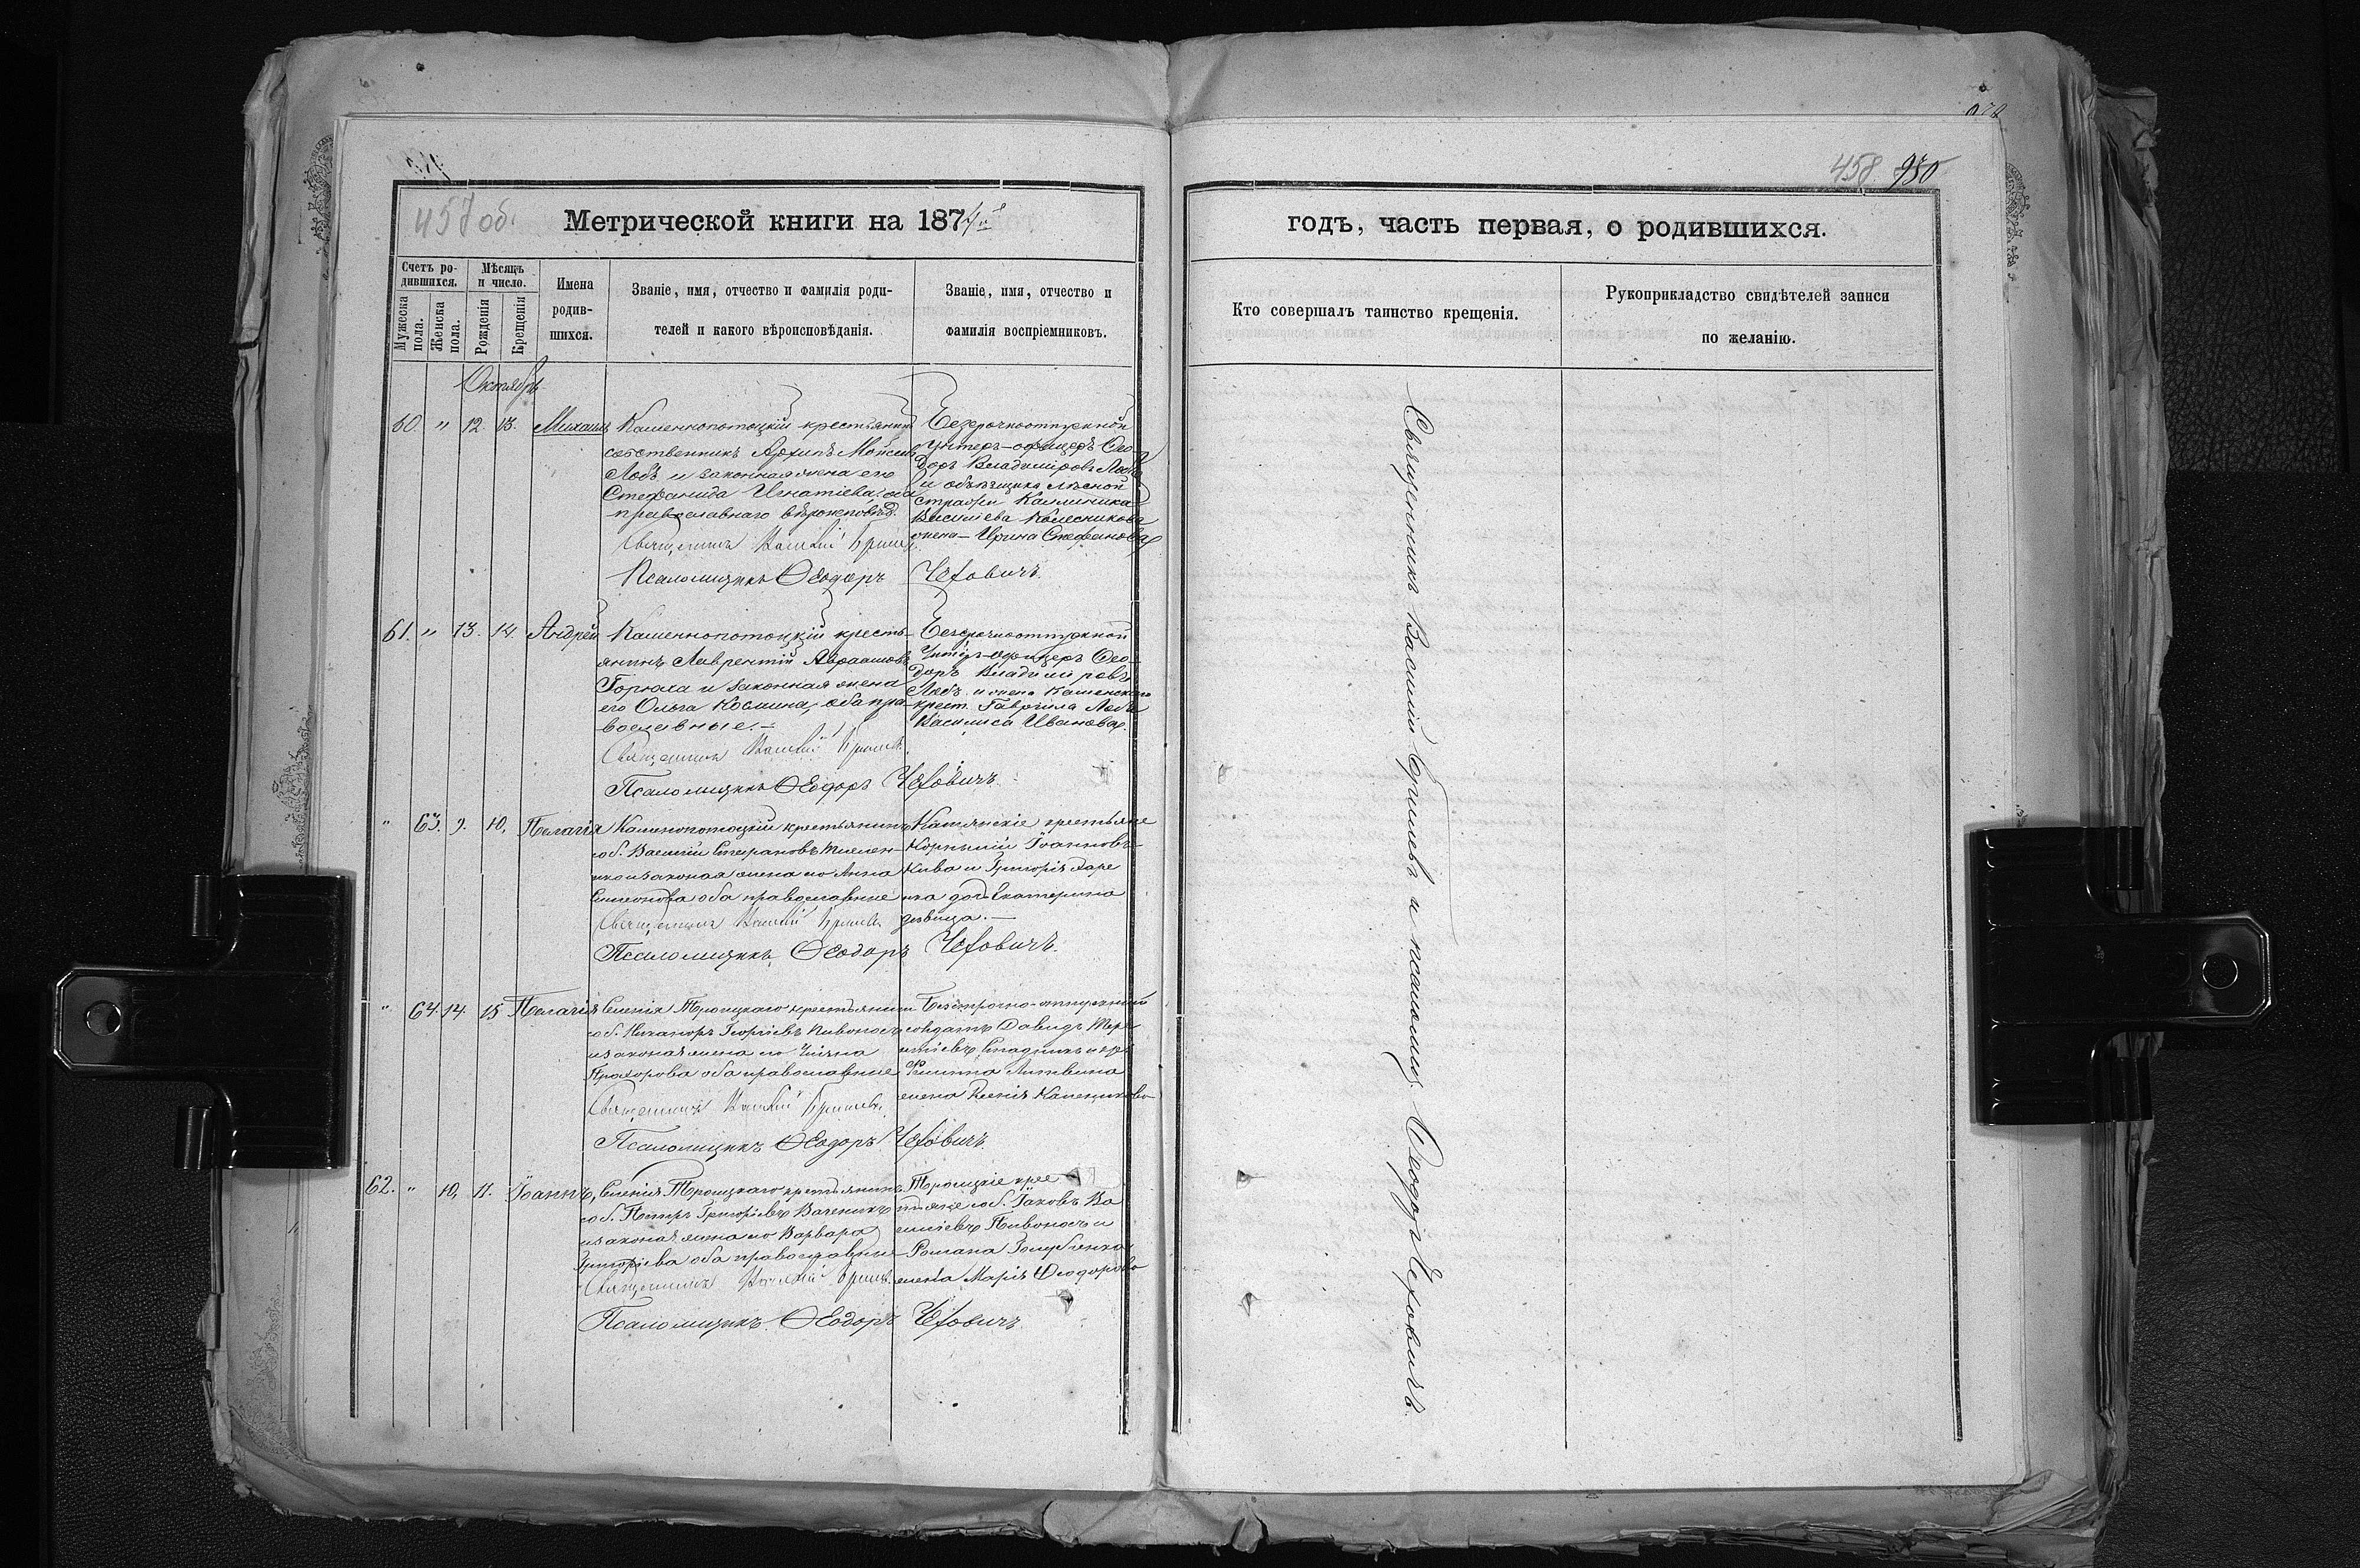 457 об.
Метрической книги на 1874й
Счетъ ро-
дившихся.
Мужеска
пола.
Женска
пола.
Мѣсяцъ
и число.
Рожденія
Крещенія
Имена
родив-
шихся.
Званіе, имя, отчество и фамилія роди-
телей и какого вѣроисповѣданія.
Званіе, имя, отчество и
фамилія воспріемниковъ.
Октябрь
60. " 12. 13. Михаилъ
Каменнопотоцкій крестьянинъ
собственникъ Архипъ Мойсеев
Лобъ и законная жена его
Стефанида Игнатіева, оба
православнаго вѣроисповѣд.
Священникъ Василій
Псаломщикъ Ѳеодоръ Чеховичъ.
Безсрочноотпускной
Унтеръ-офицеръ Ѳео-
доръ Владиміровъ Лобъ
и объѣзщика лѣсной
стражи Каллиника
Василіева Колесникова
жена - Ирина Стефанова
61. " 13. 14. Андрей
Каменнопотоцкій кресть-
янинъ Лаврентій Авраамовъ
Горкуша и законная жена
его Ольга Космина, оба пра-
вославные. -
Священникъ Василій
Псаломщикъ Ѳеодоръ Чеховичъ.
Безсрочноотпускной
Унтеръ-офицеръ Ѳео-
доръ Владиміровъ
Лобъ и жена Каменскаго
крест. Гавріила Лоба
Василиса Иванова.
" 63. 9. 10. Пелагія
Каменопотоцкій крестьянинъ
соб. Василій Стефановъ
и законая жена его Анна
Симеонова оба православные
Священникъ Василій
Псаломщикъ Ѳеодоръ Чеховичъ.
Камянскіе крестьяне
Корнилій Іоанновъ
Кива и Григорія
дочь Екатерина
дѣвица. -
" 64. 14. 15. Пелагія
Селенія Троицкаго крестьянинъ
соб. Никаноръ Георгіевъ Пивоносъ
и законая жена его Уліяна
Прохорова оба православные
Священникъ Василій
Псаломщикъ Ѳеодоръ Чеховичъ.
Безсрочно-отпускный
солдатъ Давидъ
Филиппа Литвина
жена Ксенія
62. " 10. 11. Іоаннъ,
Селенія Троицкаго крестьянинъ
соб. Петръ Григоріевъ
и законая жена его Варвара
Григоріева оба православные
Священникъ Василій
Псаломщикъ Ѳеодоръ Чеховичъ
Троицкіе крес
тьяне соб. Іаковъ Ва
силіевъ Пивоносъ и
Романа Голубенка
жена Марія Ѳеодорова
458. 930
годъ, часть первая, о родившихся.
Кто совершалъ таинство крещенія.
Рукоприкладство свидѣтелей записи
по желанію.
Священникъ Василій и псаломщ. Ѳеодоръ Чеховичъ.